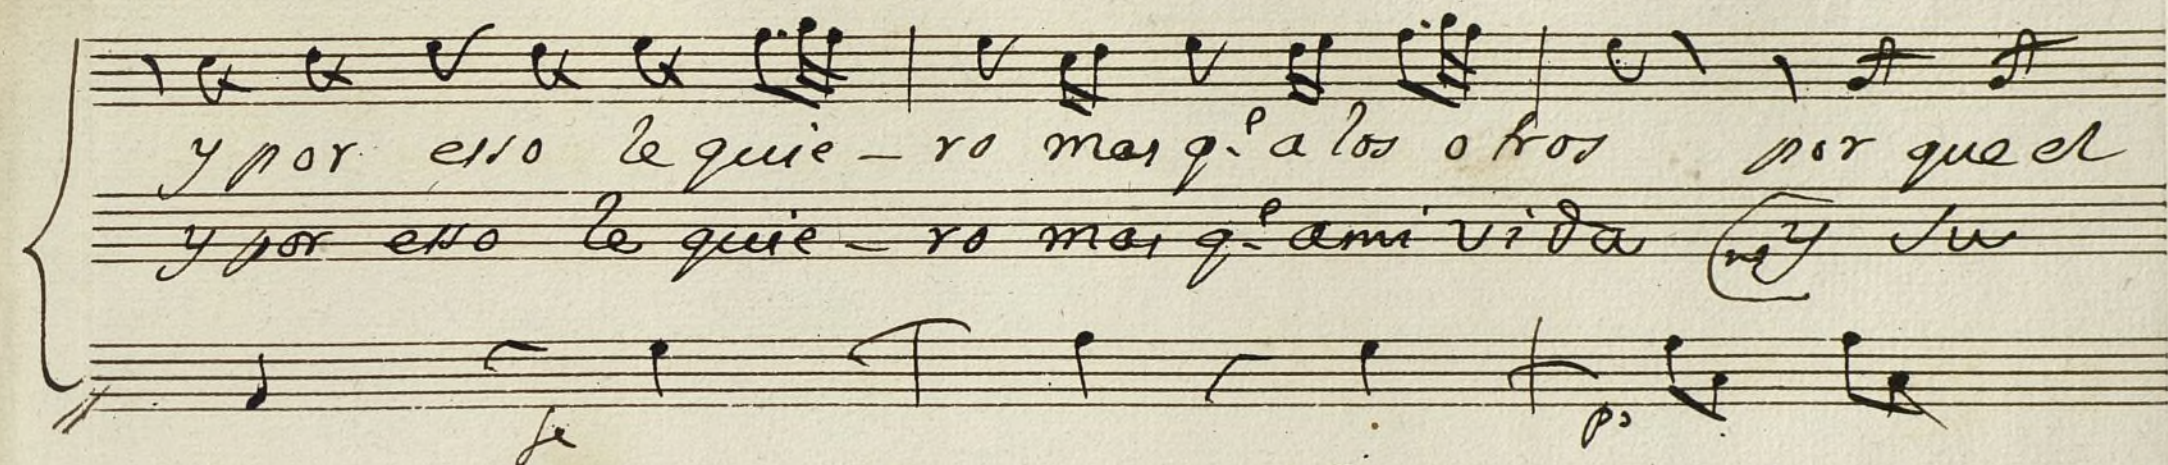 y por esso le quie - ro mas q.e a los otros por que el
y por esso le quie - ro mas q.e a mi vida y su
fe
p.o